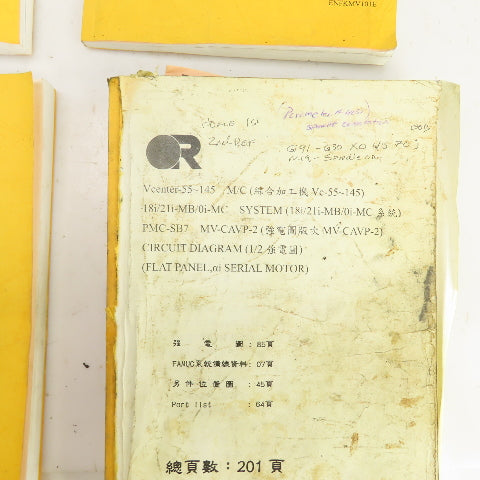 ENFKMV101E
Home 1st
2nd Ref
G91 - G30 X0 Y0 Z0;
Vcenter-55~145 M/C (綜合加工機 Vc-55~145)
18i/21i-MB/0i-MC SYSTEM (18i/21i-MB/0i-MC 系統)
PMC-SB7 MV-CAVP-2 (強電圖版次 MV-CAVP-2)
CIRCUIT DIAGRAM (1/2 強電圖)
(FLAT PANEL,αi SERIAL MOTOR)
強 電 圖 : 85頁
FANUC系統連線資料: 07頁
另件位置圖 : 45頁
Part list : 64頁
總頁數：201 頁